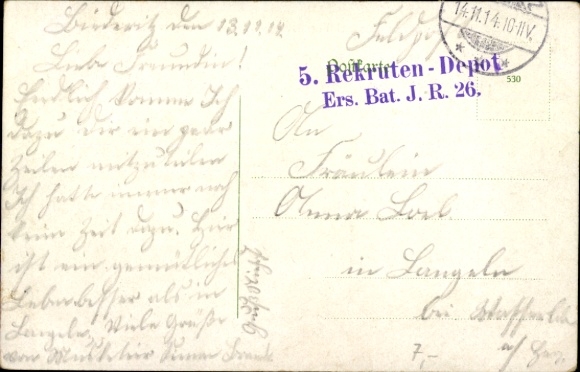 Biederitz den 13.11.14.
Liebe Freundin!
Endlich komme Ich
dazu Dir ein paar
Zeilen mitzuteilen
Ich hatte immer noch
keine Zeit dazu. Hier
ist ein gemütliches
Leben besser als in
Langeln. Viele Grüße
von Musketier
Feldpost
14.11.14.10-11V.
Postkarte
5. Rekruten-Depot
Ers. Bat. J. R. 26.
530
An
Fräulein
Anna
in Langeln
bei
7,-